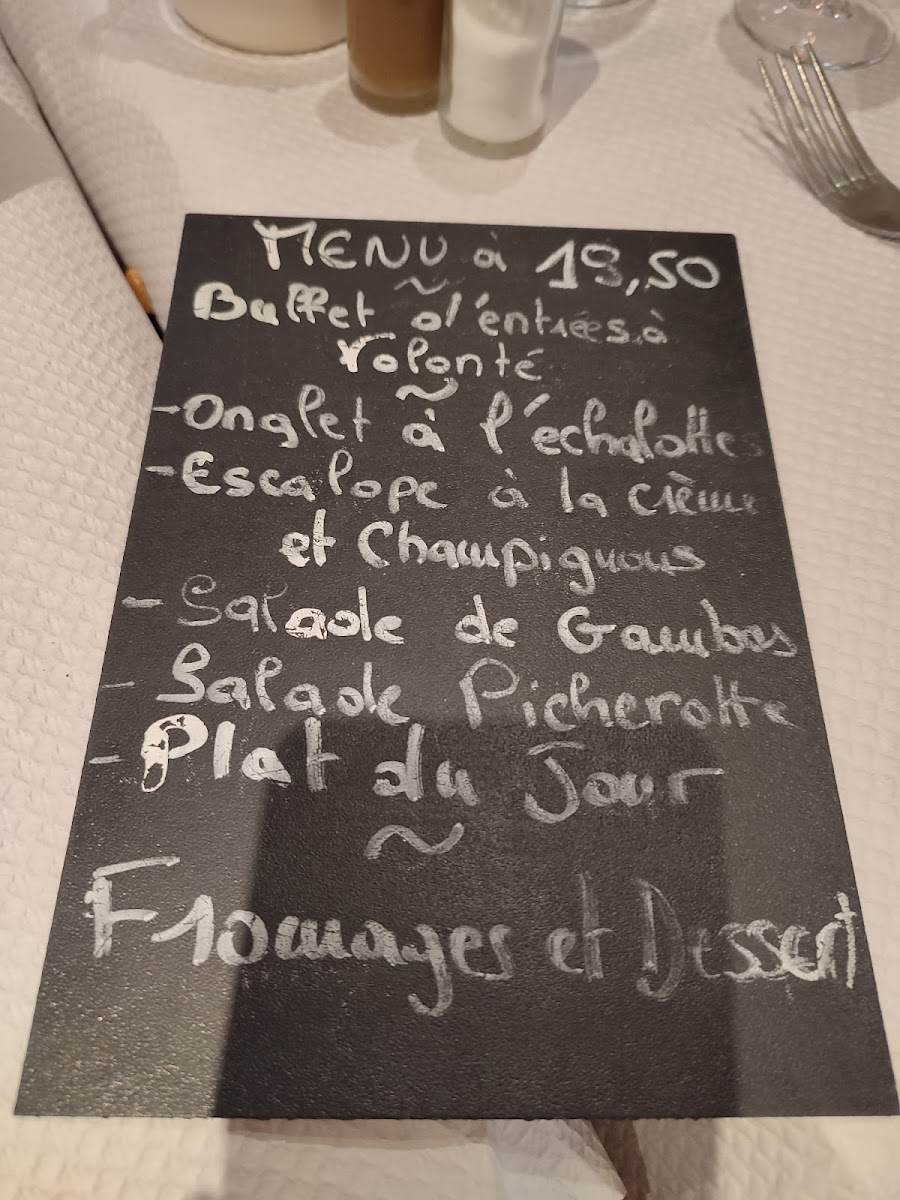 MENU à 19,50
~
Buffet d'entrées à
Volonté
~
-Onglet à l'échalottes
-Escalope à la crème
et Champignons
- Salade de Gambas
- Salade Picherotte
- Plat du Jour
~
Fromages et Dessert